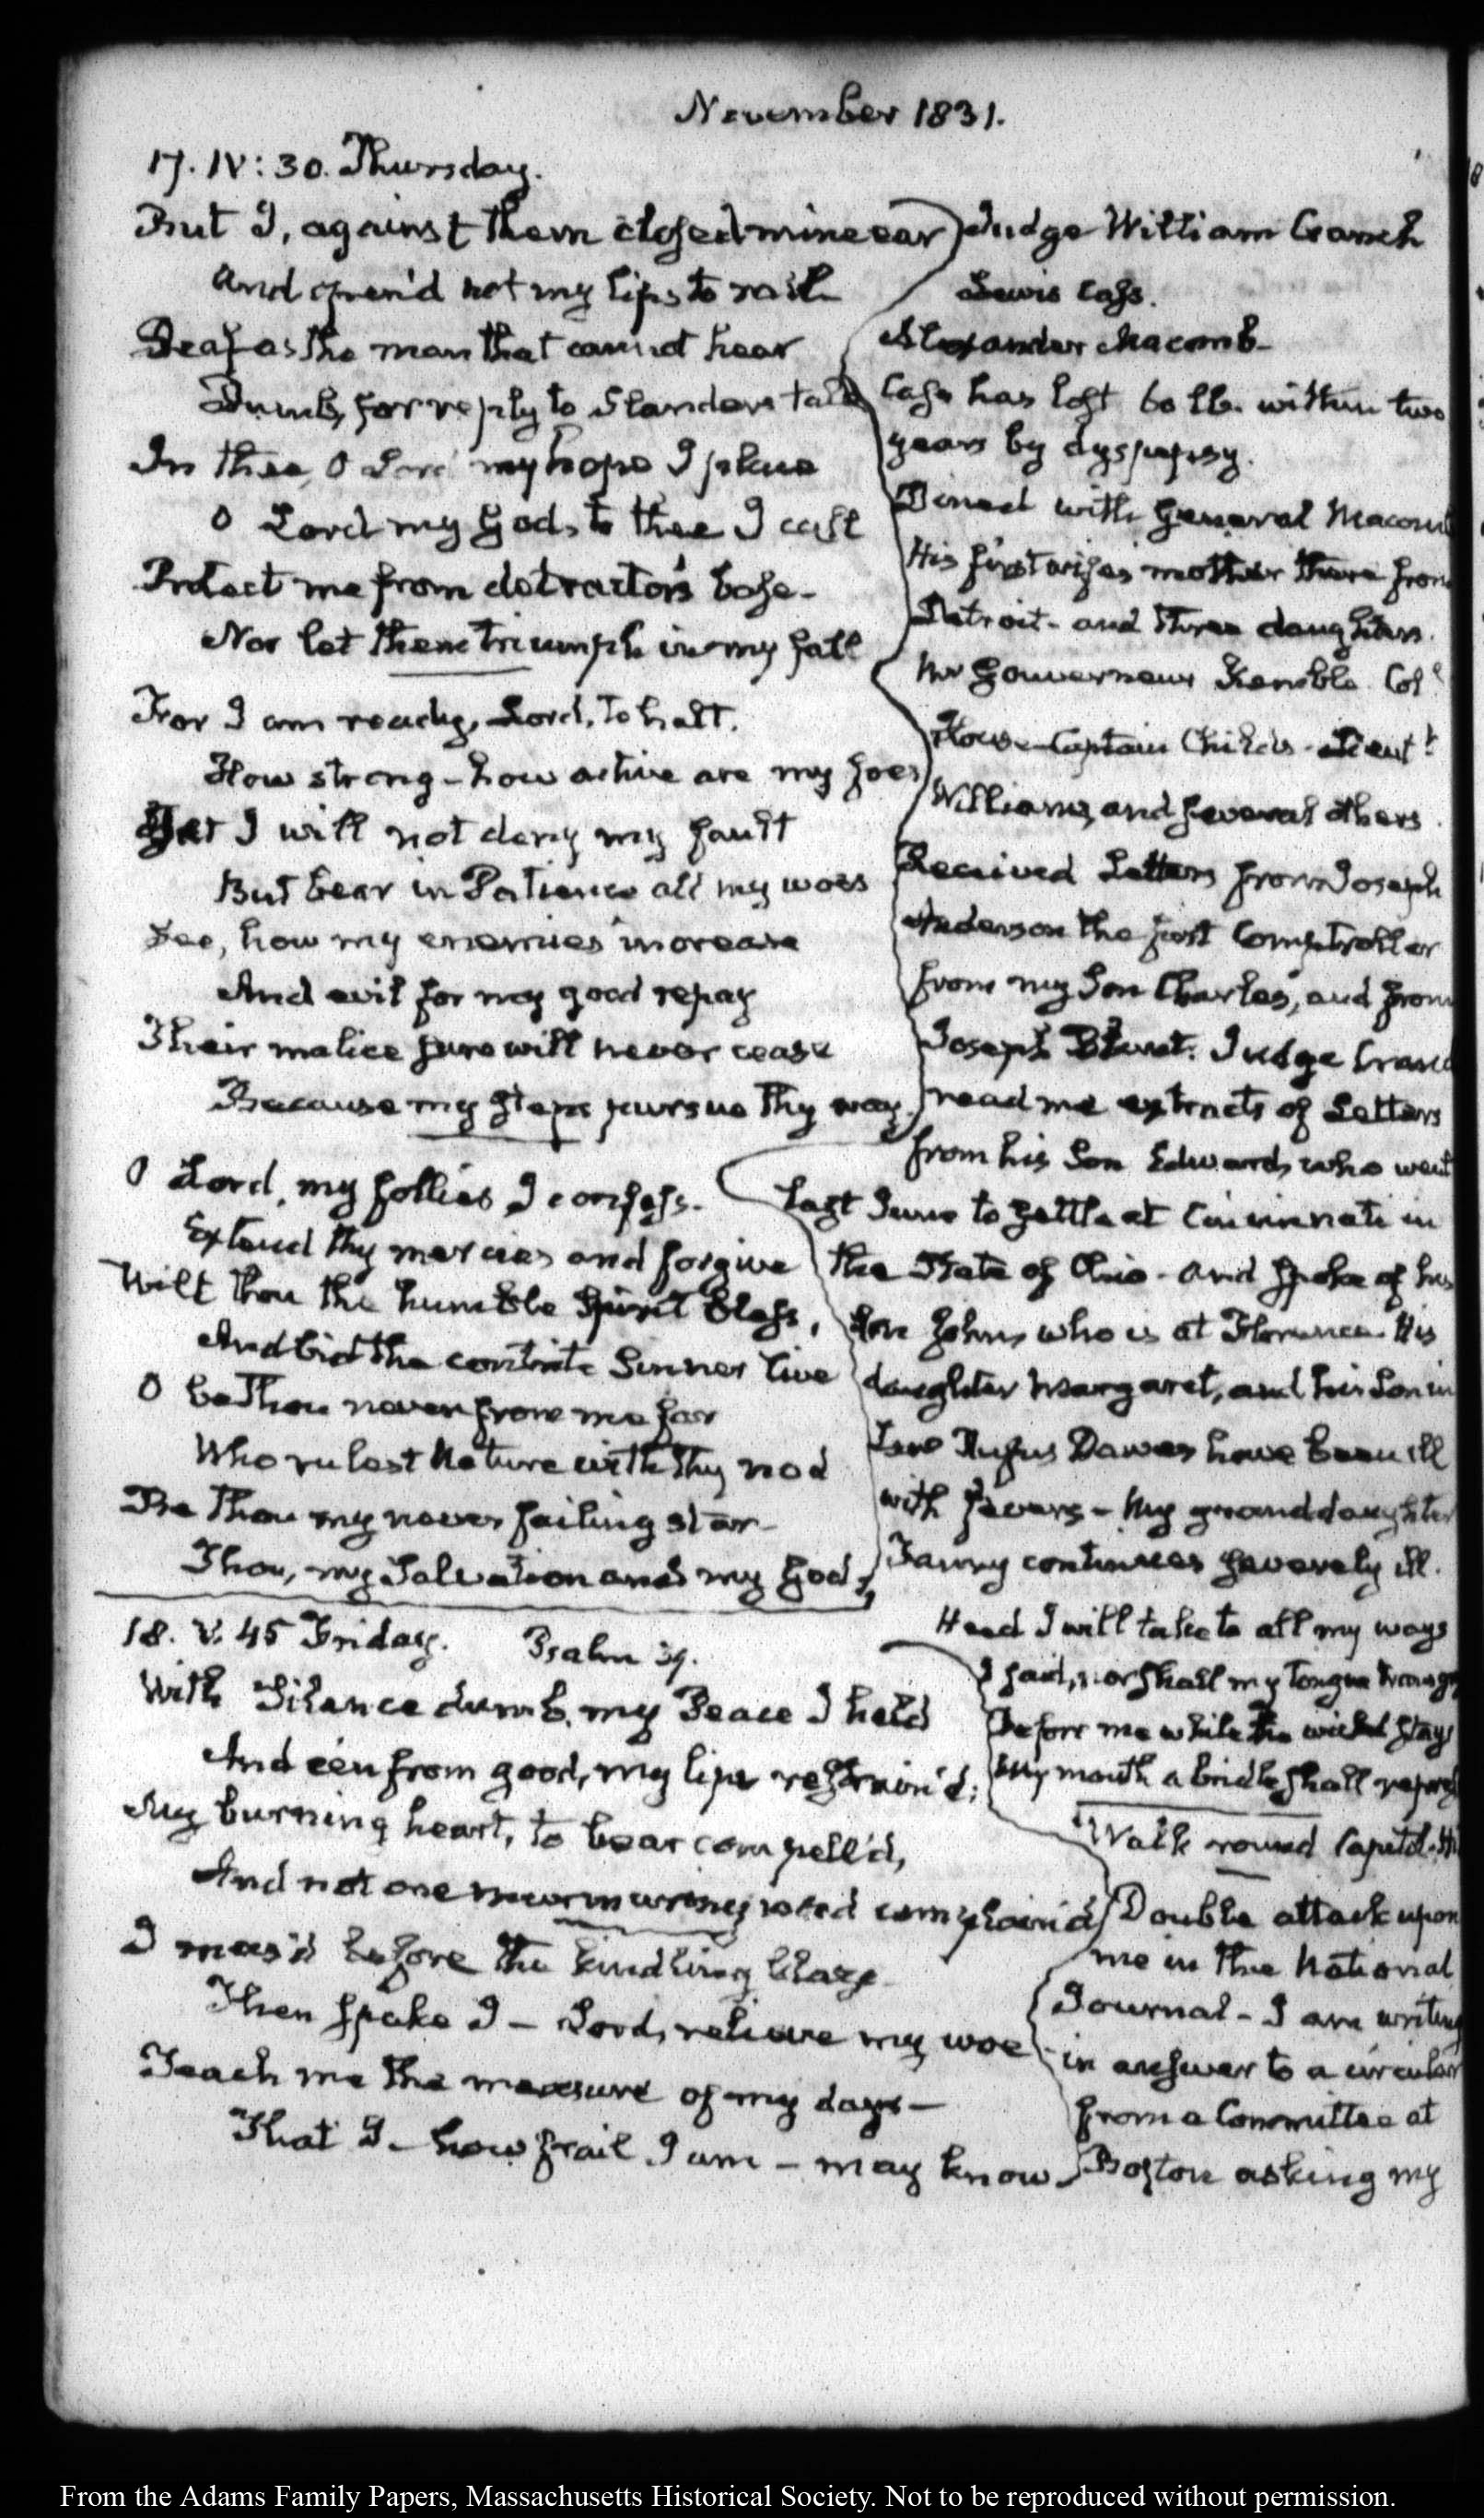 November 1831.
17. IV: 30. Thursday.
But I, against them closed mine ear
And open'd not my lips to rail
Deaf as the man that cannot hear
Dumb, for reply to Slanders tale
In thee, O Lord my hope I place
O Lord my God, to thee I call
Protect me from detractors base-
Nor let them triumph in my fall
For I am ready, Lord, to halt.
How strong - how active are my foes
Yet I will not deny my fault
But bear in Patience all my woes
See, how my enemies increase
And evil for my good repay
Their malice sure will never cease
Because my steps pursue Thy way.
O Lord, my follies I confess.
Extend thy mercies and forgive
Wilt thou the humble Spirit bless,
And bid the contrite Sinner live
O be Thou never from me far
Who rulest Nature with thy nod
Be Thou my never failing star-
Thou, my Salvation and my God.
Judge William Cranch
Lewis Cass.
Alexander Macomb-
Cass has lost 60 lb. within two
years by dyspepsy.
Dined with General Macomb
His first wife's mother there from
Detroit- and three daughters.
Mr Gouverneur Kemble. Col.l
House - Captain Childs - Lieut.t
Williams, and several others.
Received Letters from Joseph
Anderson the first Comptroller
from my Son Charles, and from
Joseph Blunt. Judge Cranch
read me extracts of Letters
from his Son Edward, who went
last June to settle at Cincinnati in
the State of Ohio - and spoke of his
son John, who is at Florence. His
daughter Margaret, and his Son in
Law Rufus Dawes have been ill
with fevers - My granddaughter
Fanny continues severely ill.
18. V. 45 Friday. Psalm 39.
Heed I will take to all my ways
I said, nor shall my tongue
Before me while the wicked stays
My mouth a bridle shall
With Silence dumb, my Peace I held
And e'en from good, my lips refrain'd;
My burning heart, to bear compell'd,
And not one murmuring word complain'd
I mus'd before the kindling blaze
Then spake I - Lord, relieve my woe
Teach me the measure of my days-
That I - how frail I am - may know
Walk round Capitol
Double attack upon
me in the National
Journal - I am writing
in answer to a circular
from a Committee at
Boston asking my
From the Adams Family Papers, Massachusetts Historical Society. Not to be reproduced without permission.